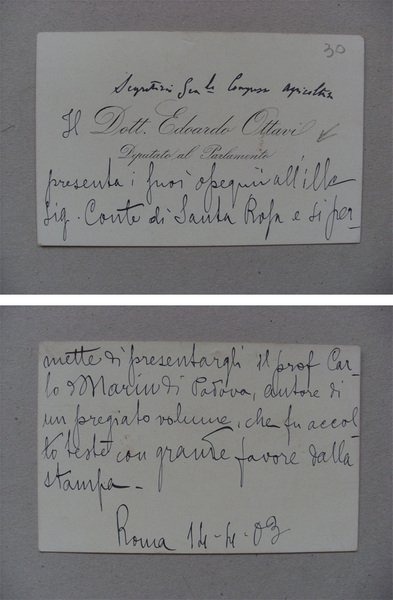 30
Segretario Gen.le Congresso Agricoltura
Il Dott. Edoardo Ottavi
Deputato al Parlamento
presenta i suoi ossequii all'Ill.
Sig. Conte di Santa Rosa e si per-
mette di presentargli il prof. Car-
lo Marin di Padova, autore di
un pregiato volume, che fu accol-
to testè con grande favore dalla
stampa -
Roma 14-4-03